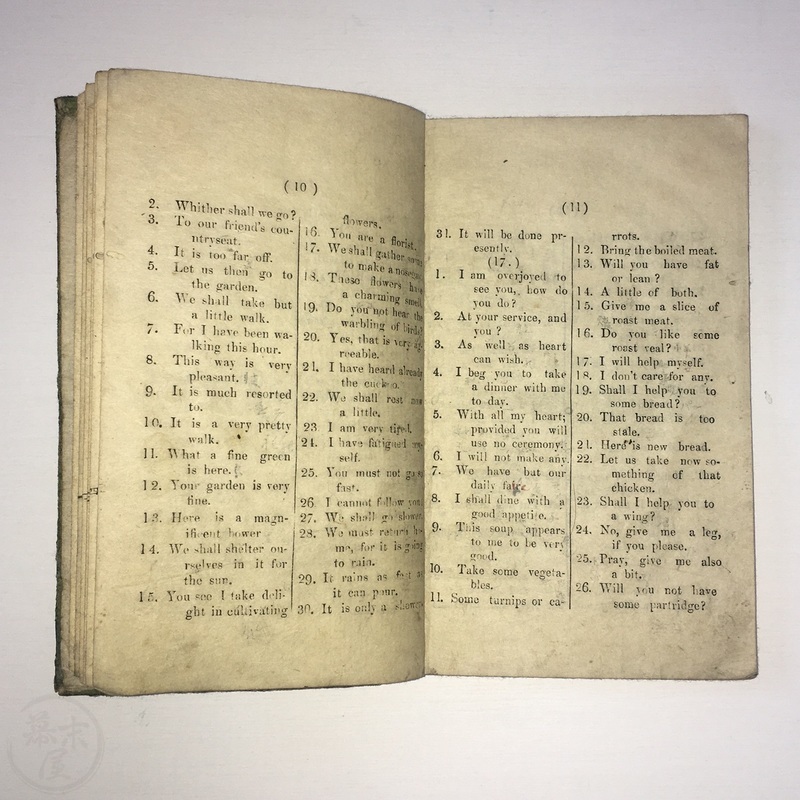 (10)
2. Whither shall we go?
3. To our friend's cou-
ntryseat.
4. It is too far off.
5. Let us then go to
the garden.
6. We shall take but
a little walk.
7. For I have been wa-
lking this hour.
8. This way is very
pleasant.
9. It is much resorted
to.
10. It is a very pretty
walk.
11. What a fine green
is here.
12. Your garden is very
fine.
13. Here is a magn-
ificent bower
14. We shall shelter ou-
rselves in it for
the sun.
15. You see I take deli-
ght in cultivating
flowers.
16. You are a florist.
17. We shall gather some
to make a nosegay.
18. These flowers have
a charming smell.
19. Do you not hear the
warbling of birds?
20. Yes, that is very ag-
reeable.
21. I have heard already
the cuckoo.
22. We shall rest now
a little.
23 I am very tired.
24. I have fatigued
self.
25. You must not go so
fast.
26 I cannot follow you.
27. We shall go slower.
28. We must return
me, for it is going
to rain.
29. It rains as fast as
it can pour.
30. It is only a shower
(11)
31. It will be done pr-
esently.
(17.)
1. I am overjoyed to
see you, how do
you do?
2. At your service, and
you ?
3. As well as heart
can wish.
4. I beg you to take
a dinner with me
to day.
5. With all my heart;
provided you will
use no ceremony.
6. I will not make any.
7. We have but our
daily fare.
8. I shall dine with a
good appetite.
9. This soup appears
to me to be very
good.
10. Take some vegeta-
bles.
11. Some turnips or ca-
rrots.
12. Bring the boiled meat.
13. Will you have fat
or lean ?
14. A little of both.
15. Give me a slice of
roast meat.
16. Do you like some
roast veal?
17. I will help myself.
18. I don't care for any.
19. Shall I help you to
some bread?
20. That bread is too
stale.
21. Here is new bread.
22. Let us take now so-
mething of that
chicken.
23. Shall I help you to
a wing?
24. No, give me a leg,
if you please.
25. Pray, give me also
a bit.
26. Will you not have
some partridge?
幕末
屋